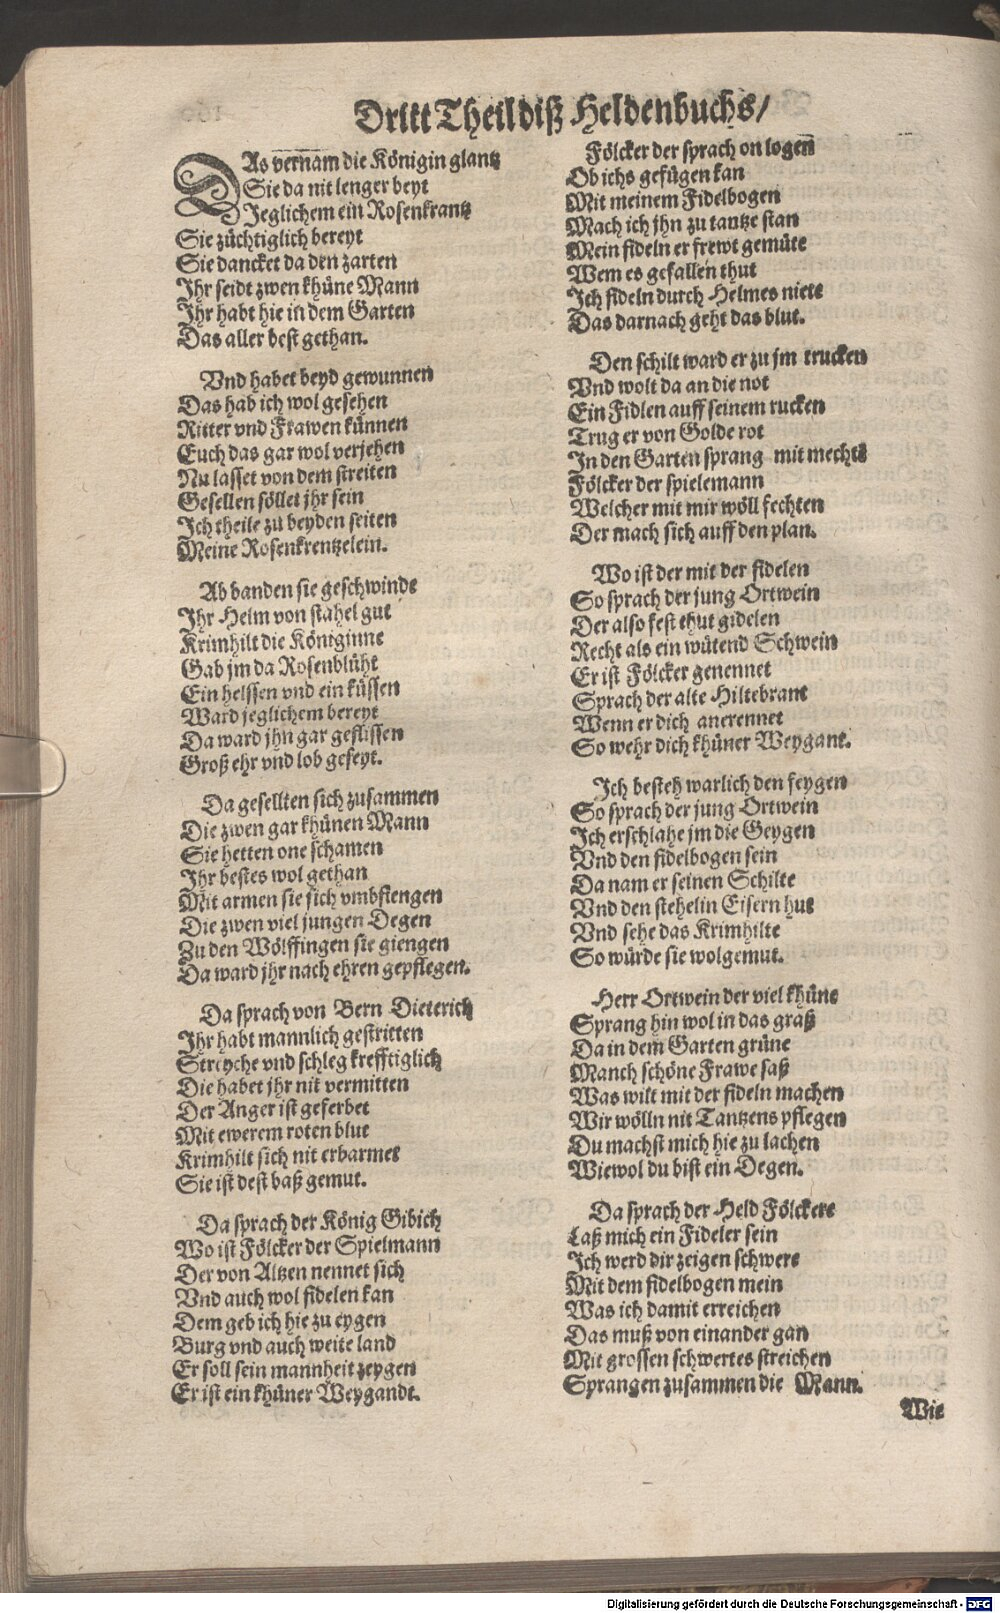 Dritt Theil diß Heldenbuchs/
DAs vernam die Königin glantz
Sie da nit lenger beyt
Jeglichem ein Rosenkrantz
Sie züchtiglich bereyt
Sie dancket da den zarten
Jhr seidt zwen khüne Mann
Jhr habt hie in dem Garten
Das aller best gethan.
Vnd habet beyd gewunnen
Das hab ich wol gesehen
Ritter vnd Frawen künnen
Euch das gar wol verjehen
Nu lasset von dem streiten
Gesellen söllet jhr sein
Jch theile zu beyden seiten
Meine Rosenkrentzelein.
Ab banden sie geschwinde
Jhr Helm von stahel gut
Krimhilt die Königinne
Gab jm da Rosenblüht
Ein helssen vnd ein küssen
Ward jeglichem bereyt
Da ward jhn gar geflissen
Groß ehr vnd lob geseyt.
Da gesellten sich zusammen
Die zwen gar khünen Mann
Sie hetten one schamen
Jhr bestes wol gethan
Mit armen sie sich vmbfiengen
Die zwen viel jungen Degen
Zu den Wölffingen sie giengen
Da ward jhr nach ehren gepflegen.
Da sprach von Bern Dieterich
Jhr habt mannlich gestritten
Streyche vnd schleg krefftiglich
Die habet jhr nit vermitten
Der Anger ist geferbet
Mit ewerem roten blut
Krimhilt sich nit erbarmet
Sie ist dest baß gemut.
Da sprach der König Gibich
Wo ist Fölcker der Spielmann
Der von Altzen nennet sich
Vnd auch wol fidelen kan
Dem geb ich hie zu eygen
Burg vnd auch weite land
Er soll sein mannheit zeygen
Er ist ein khüner Weygandt.
Fölcker der sprach on logen
Ob ichs gefügen kan
Mit meinem Fidelbogen
Mach ich jhn zu tantze stan
Mein fideln er frewt gemüte
Wem es gefallen thut
Jch fideln durch Helmes niete
Das darnach geht das blut.
Den schilt ward er zu jm trucken
Vnd wolt da an die not
Ein Fidlen auff seinem rucken
Trug er von Golde rot
Jn den Garten sprang mit mechte
Fölcker der spielemann
Welcher mit mir wöll fechten
Der mach sich auff den plan.
Wo ist der mit der fidelen
So sprach der jung Ortwein
Der also fest thut gidelen
Recht als ein wütend Schwein
Er ist Fölcker genennet
Sprach der alte Hiltebrant
Wenn er dich anerennet
So wehr dich khüner Weygant.
Jch besteh warlich den feygen
So sprach der jung Ortwein
Jch erschlahe jm die Geygen
Vnd den fidelbogen sein
Da nam er seinen Schilte
Vnd den stehelin Eisern hut
Vnd sehe das Krimhilte
So würde sie wolgemut.
Herr Ortwein der viel khüne
Sprang hin wol in das graß
Da in dem Garten grüne
Manch schöne Frawe saß
Was wilt mit der fideln machen
Wir wölln nit Tantzens pflegen
Du machst mich hie zu lachen
Wiewol du bist ein Degen.
Da sprach der Held Fölckere
Laß mich ein Fideler sein
Jch werd dir zeigen schwere
Mit dem fidelbogen mein
Was ich damit erreichen
Das muß von einander gan
Mit grossen schwertes streichen
Sprangen zusammen die Mann.
Wie
Digitalisierung gefördert durch die Deutsche Forschungsgemeinschaft - DFG